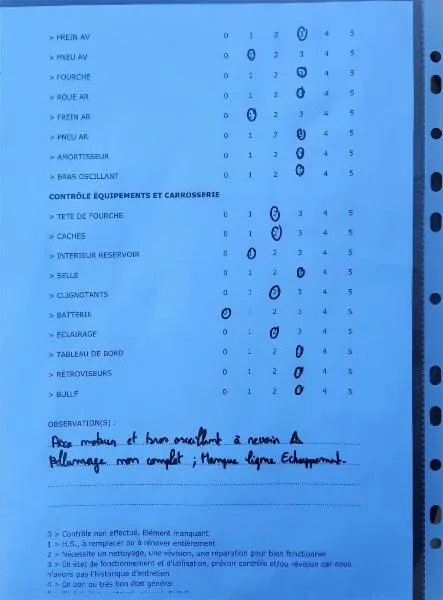 > FREIN AV 0 1 2 3 4 5
> PNEU AV 0 1 2 3 4 5
> FOURCHE 0 1 2 3 4 5
> ROUE AR 0 1 2 3 4 5
> FREIN AR 0 1 2 3 4 5
> PNEU AR 0 1 2 3 4 5
> AMORTISSEUR 0 1 2 3 4 5
> BRAS OSCILLANT 0 1 2 3 4 5
CONTRÔLE ÉQUIPEMENTS ET CARROSSERIE
> TETE DE FOURCHE 0 1 2 3 4 5
> CACHES 0 1 2 3 4 5
> INTERIEUR RESERVOIR 0 1 2 3 4 5
> SELLE 0 1 2 3 4 5
> CLIGNOTANTS 0 1 2 3 4 5
> BATTERIE 0 1 2 3 4 5
> ECLAIRAGE 0 1 2 3 4 5
> TABLEAU DE BORD 0 1 2 3 4 5
> RÉTROVISEURS 0 1 2 3 4 5
> BULLE 0 1 2 3 4 5
OBSERVATION(S) :
Axe moteur et bras oscillant à revoir
Allumage non complet ; Manque ligne Echappement.
0 > Contrôle non effectué, Elément manquant
1 > H.S., à remplacer ou à rénover entièrement
2 > Nécessite un nettoyage, une révision, une réparation pour bien fonctionner
3 > En état de fonctionnement et d'utilisation, prévoir contrôle et/ou révision car nous
n'avons pas l'historique d'entretien
4 > En bon ou très bon état général